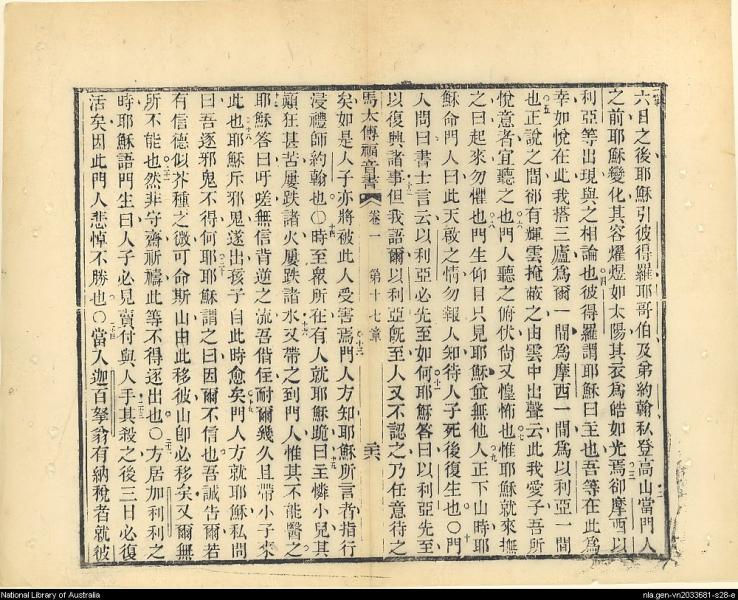 六日之後耶穌引彼得羅耶哥伯及弟約翰私登高山當門人
之前耶穌變化其容燿煜如太陽其衣爲皓如光焉卻摩西以
利亞等出現與之相論也彼得羅謂耶穌曰主也吾等在此爲
幸如悅在此我搭三廬爲爾一間爲摩西一間爲以利亞一間
也正說之間卻有輝雲掩蔽之由雲中出聲云此我愛子吾所
悅意者宜聽之也門人聽之俯伏尙又惶怖也惟耶穌就來撫
之曰起來勿懼也門生仰目只見耶穌並無他人正下山時耶
穌命門人曰此天啟之情勿報人知待人子死後復生也〇門
人問曰書士言云以利亞必先至如何耶穌答曰以利亞先至
以復興諸事但我語爾以利亞旣至人又不認之乃任意待之
馬太傳福音書 卷一 第十七章
矣如是人子亦將被此人受害焉門人方知耶穌所言者指行
浸禮師約翰也〇時至衆所在有人就耶穌跪曰主憐小兒其
顚狂甚苦屢跌諸火屢跌諸水又帶之到門人惟其不能醫之
耶穌答曰吁嗟無信背逆之流吾偕徃耐爾幾久且帶小子來
此也耶穌斥邪鬼遂出孩子自此時愈矣門人方就耶穌私問
曰吾逐邪鬼不得何耶耶穌謂之曰因爾不信也吾誠告爾若
有信德似芥種之微可命斯山由此移彼山卽必移矣又爾無
所不能也然非守齋祈禱此等不得逐出也〇方居加利利之
時耶穌語門生曰人子必見賣付與人手其殺之後三日必復
活矣因此門人悲悼不勝也〇當入迦百拏翁有納稅者就彼
National Library of Australia
nla.gen-vn2033681-s28-e